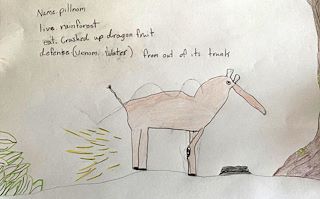 Name: pillnom
live rainforest
eat: Crashed up dragon fruit
defense: (venom, Water) from out of its trunk